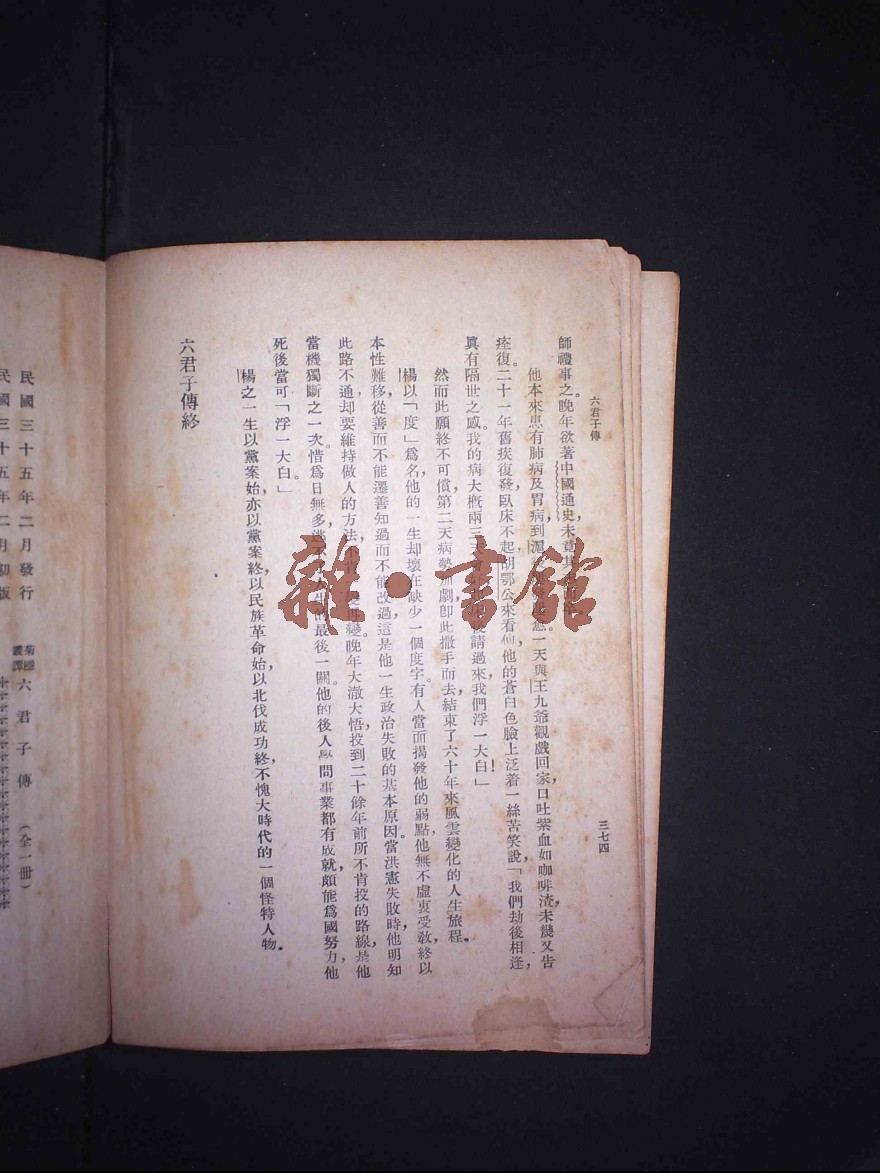 六君子傳
三七四
師禮事之。晚年欲著中國通史,未竟其
他本來患有肺病及胃病,到滬後 一天與王九爺觀戲回家,口吐紫血如咖啡渣,未幾又告
痊復。二十一年舊疾復發,臥床不起,胡鄂公來看他,他的蒼白色臉上泛着一絲苦笑說,「我們劫後相逢,
眞有隔世之感,我的病大槪兩三天 後請過來,我們浮一大白!」
然而此願終不可償,第二天病勢加劇,卽此撒手而去,結束了六十年來風雲變化的人生旅程。
楊以「度」爲名,他的一生却壞在缺少一個度字。有人當面揭發他的弱點,他無不虛衷受敎,終以
本性難移,從善而不能遷善,知過而不能改過,這是他一生政治失敗的基本原因。當洪憲失敗時,他明知
此路不通,却要維持做人的方法,不 變。晚年大澈大悟,投到二十餘年前所不肯投的路線,是他
當機獨斷之一次。惜爲日無多,逃不 人生的最後一關。他的後人學問事業都有成就,頗能爲國努力,他
死後當可「浮一大白」。
楊之一生以黨案始,亦以黨案終,以民族革命始,以北伐成功終,不愧大時代的一個怪特人物。
六君子傳終
民國三十五年二月發行
民國三十五年二月初版
菊隱叢譚 六君子傳 (全一冊)
雜·書館